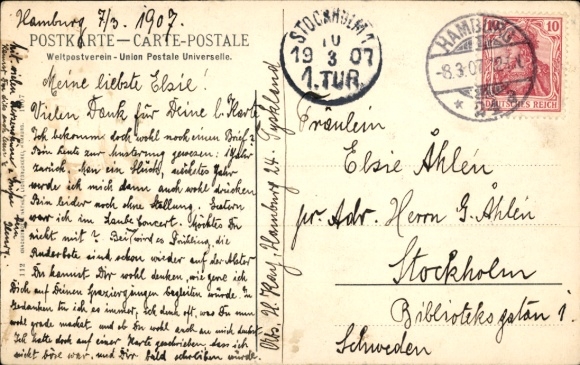 Hamburg 7/3. 1907.
POSTKARTE — CARTE-POSTALE
Weltpostverein - Union Postale Universelle.
Meine liebste Elsie!
Vielen Dank für Deine l. Karte
Ich bekomme doch wohl noch einen Brief?
Bin heute zur Musterung gewesen: 1 Jahr
zurück. Man ein Glück, nächstes Jahr
werde ich mich dann auch wohl drücken
Bin leider noch ohne Stellung. Gestern
war ich im Concert. Möchtes Du
nicht mit? Bei wird es Frühling, die
Ruderbote sind schon wieder auf der Alster
Du kannst Dir wohl denken, wie gern ich
Dich auf Deinen Spaziergängen begleiten würde. In
Gedanken tu ich es immer, ich denk oft, was Du nun
wohl grade machst, und ob Du wohl auch an mich denkst.
Ich hatte doch auf einer Karte geschrieben, dass ich
nicht böse war, und Dir bald schreiben würde.
Mit vielen
Henry.
112
Abs. H. Kay, Hamburg 24. Tyskland
STOCKHOLM 1
10
19 3 07
1. TUR.
HAMBURG
8.3.07
10
DEUTSCHES REICH
Fräulein
Elsie Åhlén
pr Adr. Herrn G. Åhlén
Stockholm
Biblioteksgatan 1.
Schweden